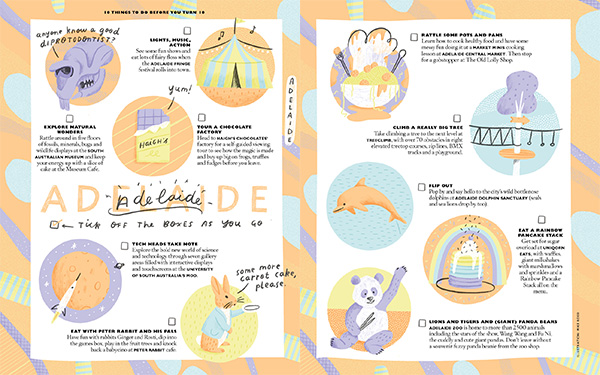 10 THINGS TO DO BEFORE YOU TURN 10
anyone know a good
diprotodontist?
LIGHTS, MUSIC,
ACTION
See some fun shows and
eat lots of fairy floss when
the ADELAIDE FRINGE
festival rolls into town.
yum!
HAIGH'S
EXPLORE NATURAL
WONDERS
Rattle around in five floors
of fossils, minerals, bugs and
wildlife displays at the SOUTH
AUSTRALIAN MUSEUM and keep
your energy up with a slice of
cake at the Museum Cafe.
TOUR A CHOCOLATE
FACTORY
Head to HAIGH'S CHOCOLATES'
factory for a self-guided viewing
tour to see how the magic is made
and buy up big on frogs, truffles
and fudges before you leave.
ADELAIDE
Adelaide
← TICK OFF THE BOXES AS YOU GO
TECH HEADS TAKE NOTE
Explore the bold new world of science
and technology through seven gallery
areas filled with interactive displays
and touchscreens at the UNIVERSITY
OF SOUTH AUSTRALIA'S MOD.
some more
carrot cake,
please.
EAT WITH PETER RABBIT AND HIS PALS
Have fun with rabbits Ginger and Roxii, dip into
the games box, play in the fruit trees and knock
back a babycino at PETER RABBIT cafe.
ADELAIDE
RATTLE SOME POTS AND PANS
Learn how to cook healthy food and have some
messy fun doing it at a MARKET MINIS cooking
lesson at ADELAIDE CENTRAL MARKET. Then stop
for a gobstopper at The Old Lolly Shop.
CLIMB A REALLY BIG TREE
Take climbing trees to the next level at
TREECLIMB, with over 70 obstacles in eight
elevated treetop courses, zip lines, BMX
tracks and a playground.
FLIP OUT
Pop by and say hello to the city's wild bottlenose
dolphins at ADELAIDE DOLPHIN SANCTUARY (seals
and sea lions drop by too).
EAT A RAINBOW
PANCAKE STACK
Get set for sugar
overload at UNIQORN
EATS, with waffles,
giant milkshakes
with marshmallows
and sprinkles and a
Rainbow Pancake
Stack all on the
menu.
LIONS AND TIGERS AND (GIANT) PANDA BEARS
ADELAIDE ZOO is home to more than 2500 animals
including the stars of the show, Wang Wang and Fu Ni,
the cuddly and cute giant pandas. Don't leave without
a souvenir furry panda beanie from the zoo shop.